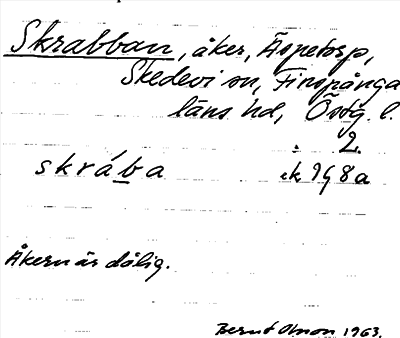 Skrabban, åker, Äspetorp,
Skedevi sn, Finspånga
läns hd, Östg. l.
2.
skrába ek 948a
Åkern är dålig.
Bernt Olsson 1963.